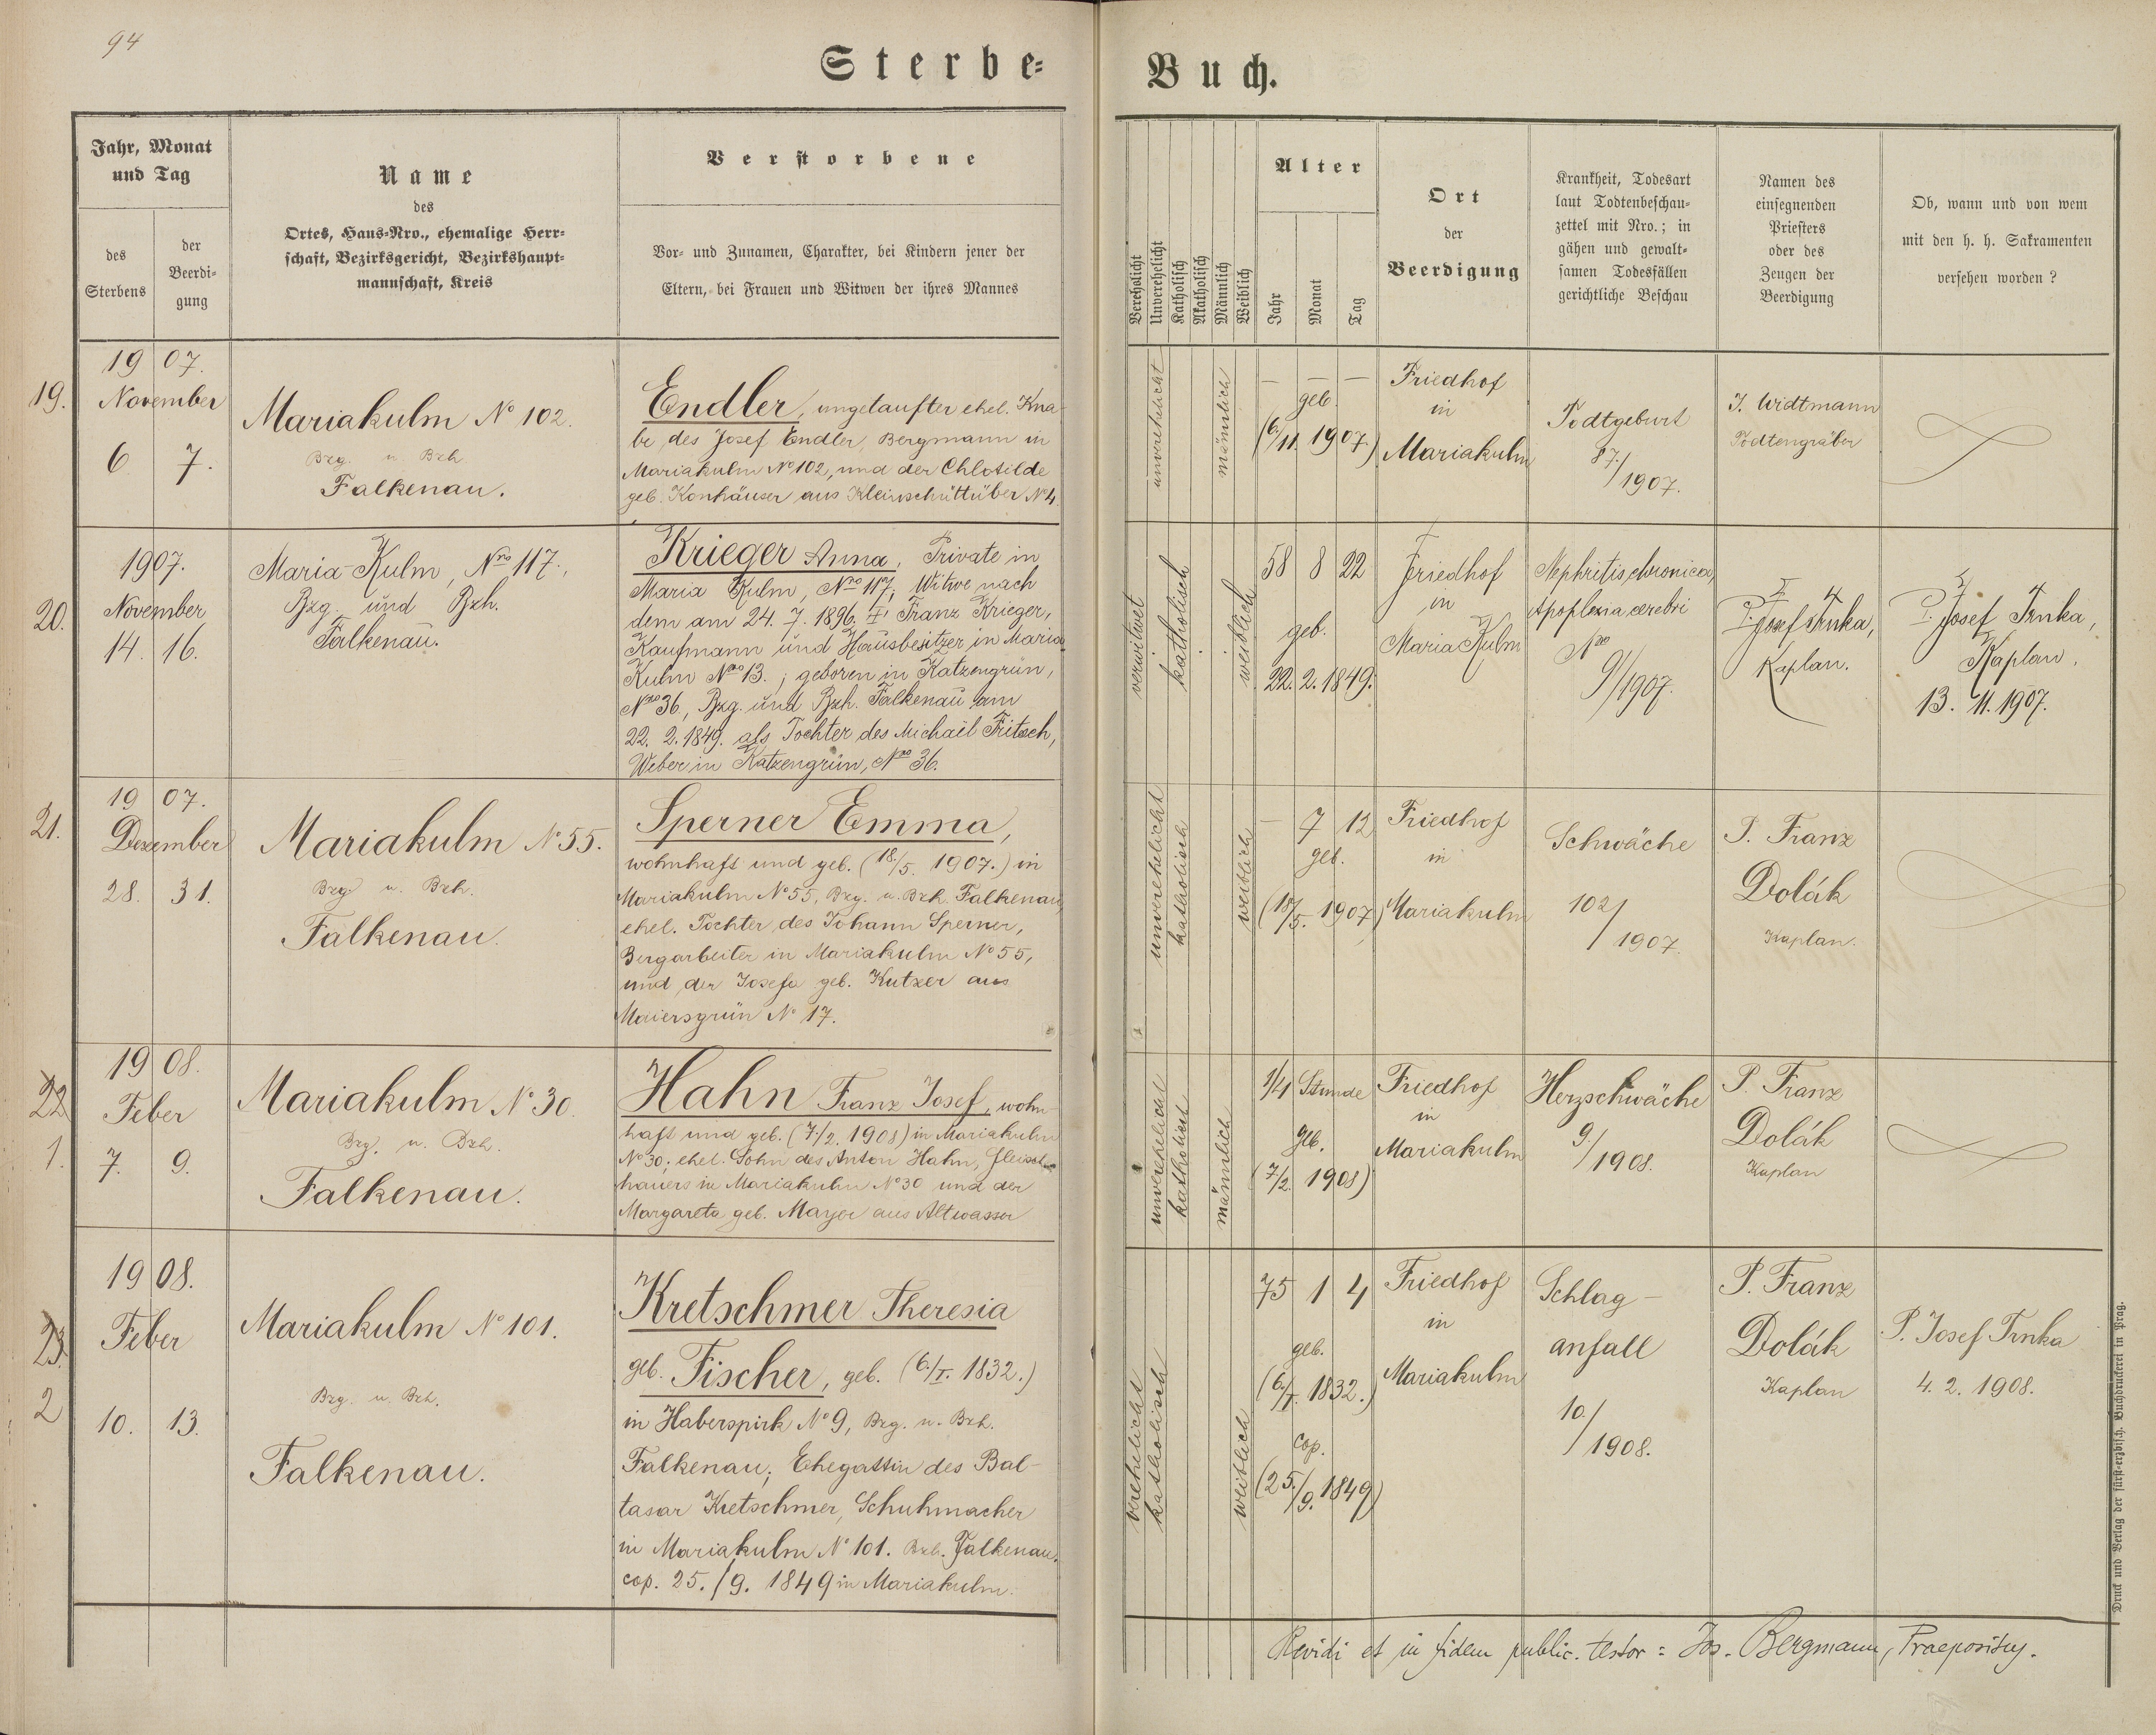 94
Sterbe-
Buch.
Jahr, Monat
und Tag
des
Sterbens
der
Beerdi-
gung
Name
des
Ortes, Haus-Nro., ehemalige Herr-
schaft, Bezirksgericht, Bezirkshaupt-
mannschaft, Kreis
Verstorbene
Vor- und Zunamen, Charakter, bei Kindern jener der
Eltern, bei Frauen und Witwen der ihres Mannes
Verehelicht
Unverehelicht
Katholisch
Akatholisch
Männlich
Weiblich
Alter
Jahr
Monat
Tag
Ort
der
Beerdigung
Krankheit, Todesart
laut Todtenbeschau-
zettel mit Nro.; in
gähen und gewalt-
samen Todesfällen
gerichtliche Beschau
Namen des
einsegnenden
Priesters
oder des
Zeugen der
Beerdigung
Ob, wann und von wem
mit den h. h. Sakramenten
versehen worden?
19.
1907.
November
6 7.
Mariakulm No 102.
Bzg. u. Bzh.
Falkenau.
Endler, ungetaufter ehel. Kna-
be, des Josef Endler, Bergmann in
Mariakulm No 102, und der Chlotilde
geb. Konhäuser aus Kleinschüttüber No 4.
unverehelicht
männlich
— — —
geb.
(6./11. 1907.)
Friedhof
in
Mariakulm
Todtgeburt
87./1907.
J. Widtmann
Todtengräber
20.
1907.
November
14. 16.
Maria-Kulm, Nro 117.,
Bzg. und Bzh.
Falkenau.
Krieger Anna, Private in
Maria Kulm, Nro 117; Witwe nach
dem am 24. 7. 1896. † Franz Krieger,
Kaufmann und Hausbesitzer in Maria
Kulm Nro 13.; geboren in Katzengrün,
Nro 36., Bzg. und Bzh. Falkenau am
22. 2. 1849. als Tochter des Michael Fritsch,
Weber in Katzengrün, Nro 36.
verwitwet
katholisch
weiblich
58 8 22
geb.
22. 2. 1849.
Friedhof
in
Maria Kulm
Nephritis chronica,
Apoplexia cerebri
Nro
91/1907.
P. Josef Trnka,
Kaplan.
P. Josef Trnka,
Kaplan.
13. 11. 1907.
21.
1907.
Dezember
28. 31.
Mariakulm No 55.
Bzg. u. Bzh.
Falkenau.
Sperner Emma,
wohnhaft und geb. (18/5. 1907.) in
Mariakulm No 55, Bzg. u. Bzh. Falkenau,
ehel. Tochter des Johann Sperner,
Bergarbeiter in Mariakulm No 55,
und der Josefa geb. Kutzer aus
Maiersgrün No 17.
unverehelicht
katholisch
weiblich
— 7 12
geb.
(18/5. 1907)
Friedhof
in
Mariakulm
Schwäche
102/1907.
P. Franz
Dolák
Kaplan.
22
1.
1908.
Feber
7. 9.
Mariakulm No 30.
Bzg. u. Bzh.
Falkenau.
Hahn Franz Josef, wohn-
haft und geb. (7./2. 1908) in Mariakulm
No 30; ehel. Sohn des Anton Hahn, Fleisch-
hauers in Mariakulm No 30 und der
Margareta geb. Mayer aus Altwasser
unverehelicht
katholisch
männlich
1/4 Stunde
geb.
(7/2. 1908)
Friedhof
in
Mariakulm
Herzschwäche
9./1908.
P. Franz
Dolák
Kaplan
23.
2
1908.
Feber
10. 13.
Mariakulm No 101.
Bzg. u. Bzh.
Falkenau.
Kretschmer Theresia
geb. Fischer, geb. (6./I. 1832.)
in Haberspirk No 9, Bzg. u. Bzh.
Falkenau; Ehegattin des Bal-
tasar Kretschmer, Schuhmacher
in Mariakulm No 101. Bzh. Falkenau.
cop. 25./9. 1849 in Mariakulm.
verehelicht
katholisch
weiblich
75 1 4
geb.
(6./I. 1832.)
cop.
(25./9. 1849)
Friedhof
in
Mariakulm
Schlag-
anfall
10./1908.
P. Franz
Dolák
Kaplan
P. Josef Trnka
4. 2. 1908.
Revidi et in fidem public. testor: Jos. Bergmann, Praepositus.
Druck und Verlag der fürst-erzbisch. Buchdruckerei in Prag.